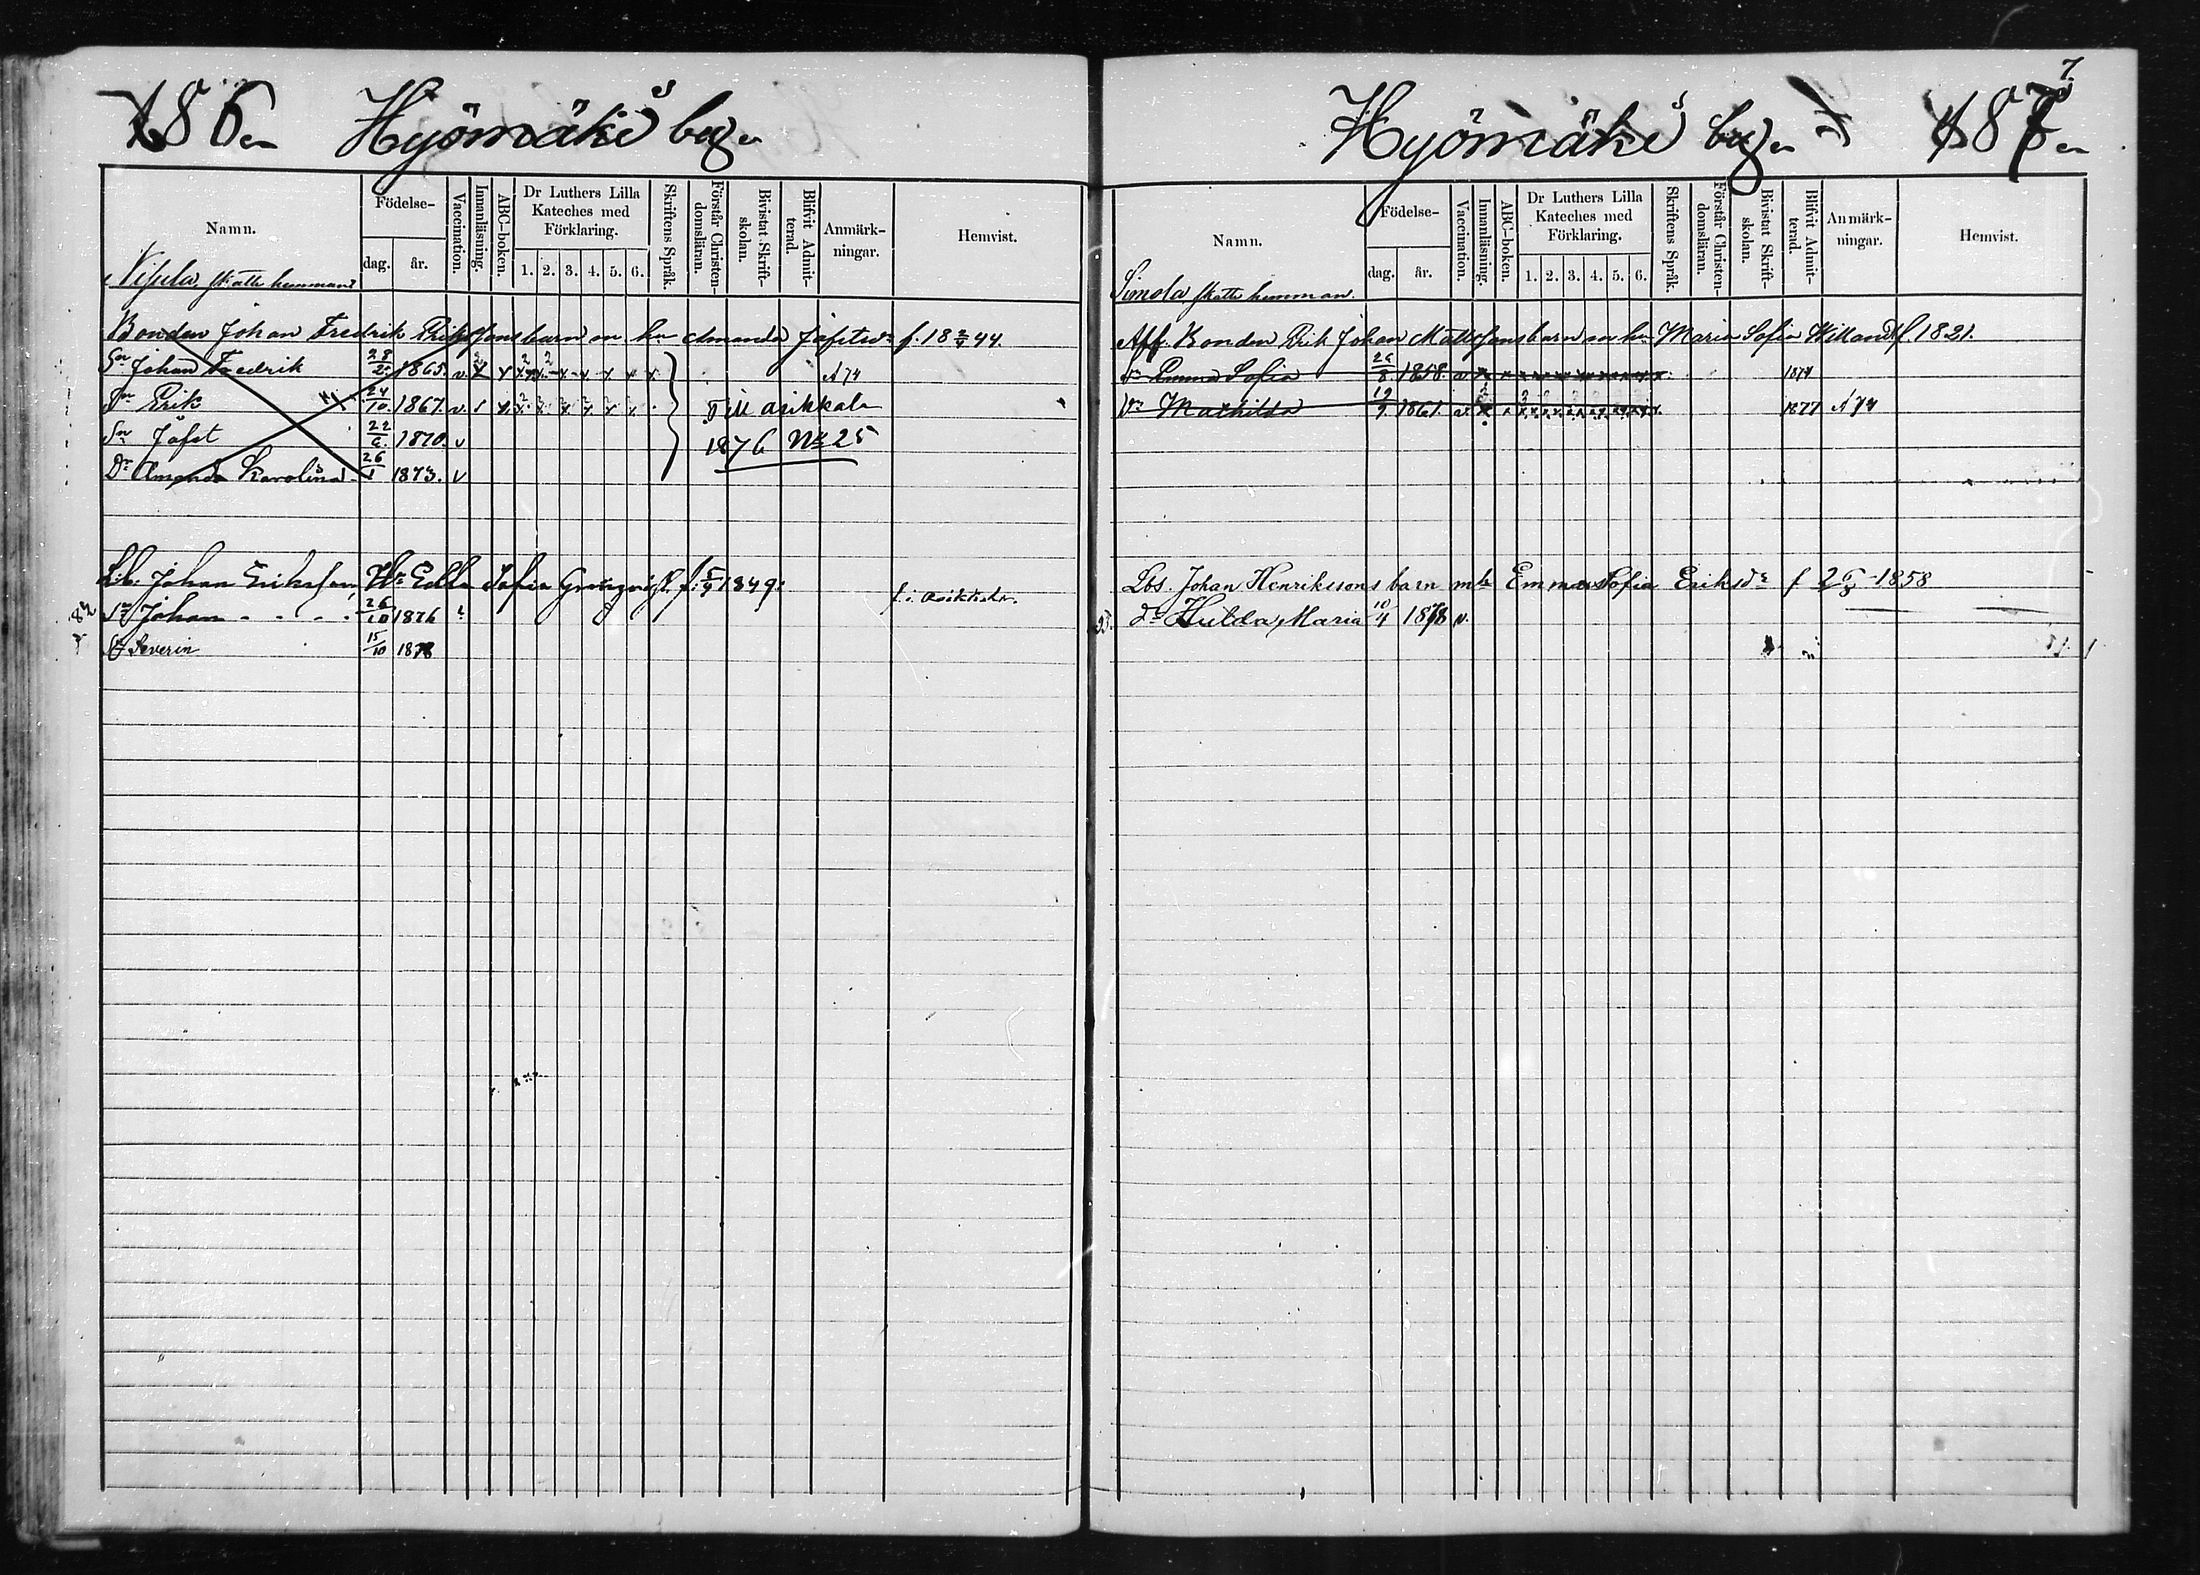 186 Hyömäki by
Namn. Födelse- dag. år. Vaccination. Innanläsning. ABC-boken. Dr Luthers Lilla Kateches med Förklaring. 1. 2. 3. 4. 5. 6. Skriftens Språk. Förstår Christendomsläran. Bivistat Skriftskolan. Blifvit Admitterad. Anmärkningar. Hemvist.
skatte hemman
Bonden Johan Fredrik Erikssons barn m. hu Amanda Jafetsdr f. 18 2/9 44.
Sn Johan Fredrik 28/2 1865. v. A 74
Sn Erik 24/10 1867. v. Till asikkala
Sn Jafet 22/6 1870. v 1876 No 25
Dr Amanda Karolina 26/1 1873. v
L.b. Johan Eriksson, Hu Edla Sofia Grönqvist f. 5/9 1849.
Sn Johan 26/10 1876
Sn Severin 15/10 1878
7.
Hyömäki by 187
Namn. Födelse- dag. år. Vaccination. Innanläsning. ABC-boken. Dr Luthers Lilla Kateches med Förklaring. 1. 2. 3. 4. 5. 6. Skriftens Språk. Förstår Christendomsläran. Bivistat Skriftskolan. Blifvit Admitterad. Anmärkningar. Hemvist.
Simola skatte hemman.
Aff. Bonden Erik Johan Mattssons barn m hu Maria Sofia f. 1821.
Dr Emma Sofia 26/8 1858. 1874
Dr Mathilda 19/9 1861. 1877 A 74
Lbs. Johan Henrikssons barn m h Emma Sofia Eriksdr f 26/8 1858
93. dr Hulda Maria 10/4 1878 v.